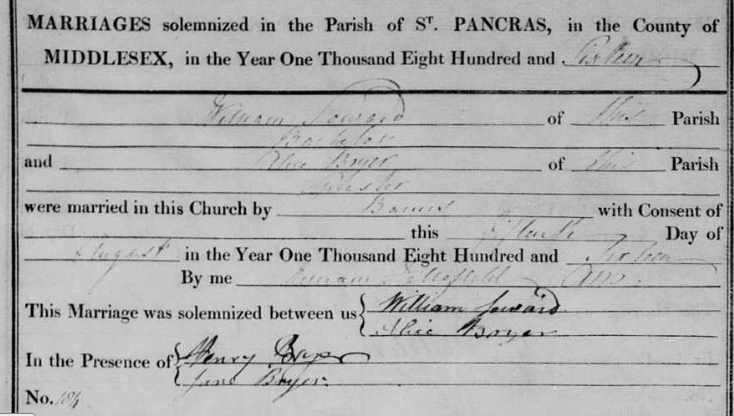 MARRIAGES solemnized in the Parish of St. PANCRAS, in the County of
MIDDLESEX, in the Year One Thousand Eight Hundred and Sixteen
William Soward of this Parish
Bachelor
and Alice Boyer of this Parish
Spinster
were married in this Church by Banns with Consent of
this fifteenth Day of
August in the Year One Thousand Eight Hundred and Sixteen
By me William
This Marriage was solemnized between us { William Soward
Alice Boyer
In the Presence of { Henry Boyer
Jane Boyer.
No. 184